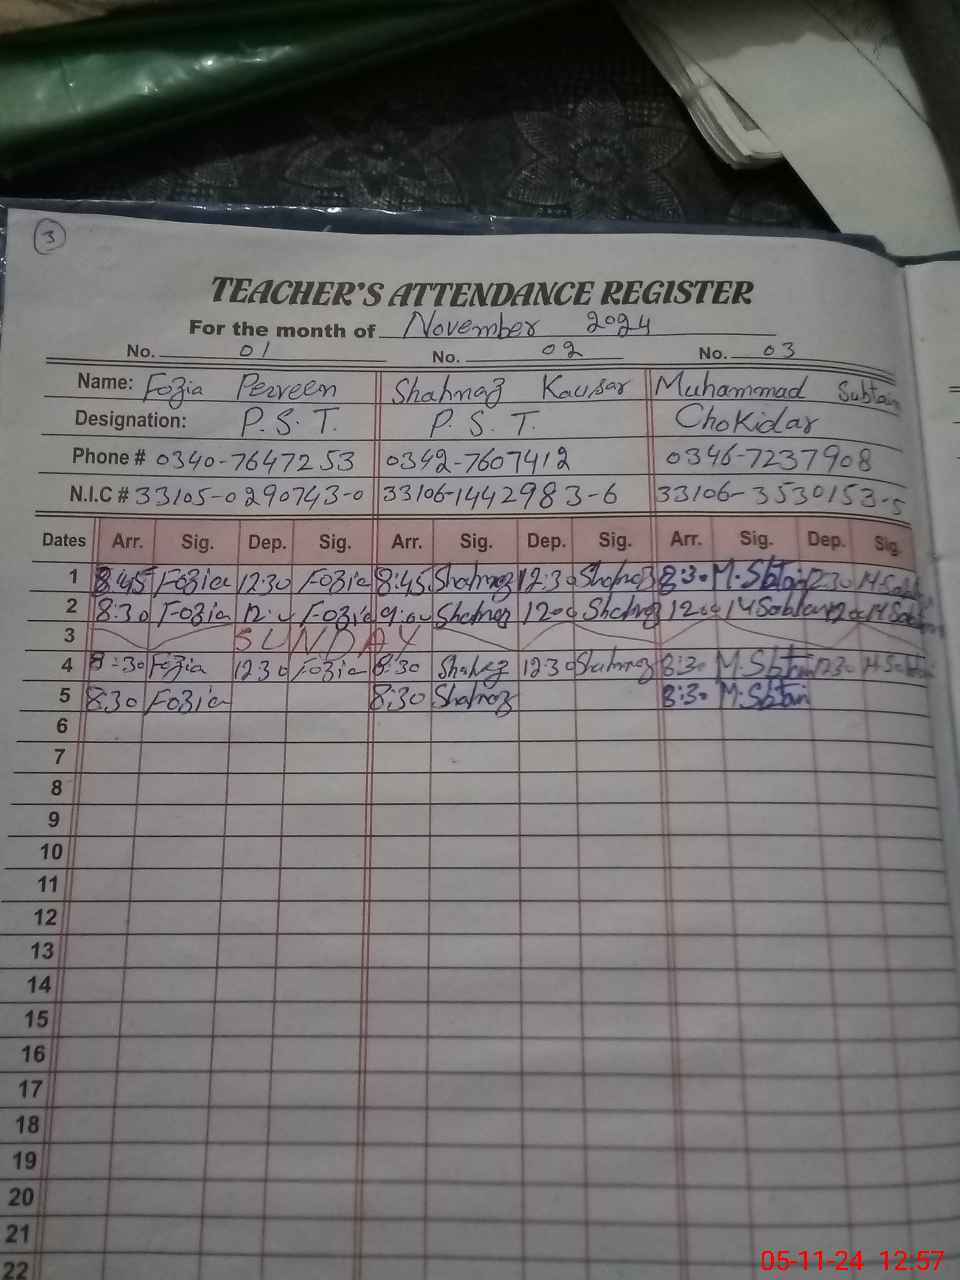 3
TEACHER'S ATTENDANCE REGISTER
For the month of November 2024
No. 01 No. 02 No. 03
Name: Fozia Perveen Shahnaz Kausar Muhammad Subtain
Designation: P. S. T. P. S. T. Chokidar
Phone # 0340-7647253 0342-7607412 0346-7237908
N.I.C # 33105-0290743-0 33106-1442983-6 33106-3530153-5
Dates Arr. Sig. Dep. Sig. Arr. Sig. Dep. Sig. Arr. Sig. Dep. Sig.
1 8:45 Fozia 12:30 Fozia 8:45 Shahnaz 12:30 Shahnaz 8:30 M.Sbtain 1230
2 8:30 Fozia Fozia 9:00 Shahnaz 1200 Shahnaz 1200
3 SUNDAY
4 8:30 Fozia 1230 Fozia 8:30 Shahnaz 12:30 Shahnaz 8:30 M.Sbtain 1230
5 8:30 Fozia 8:30 Shahnaz 8:30 M.Sbtain
6
7
8
9
10
11
12
13
14
15
16
17
18
19
20
21
22
05-11-24 12:57